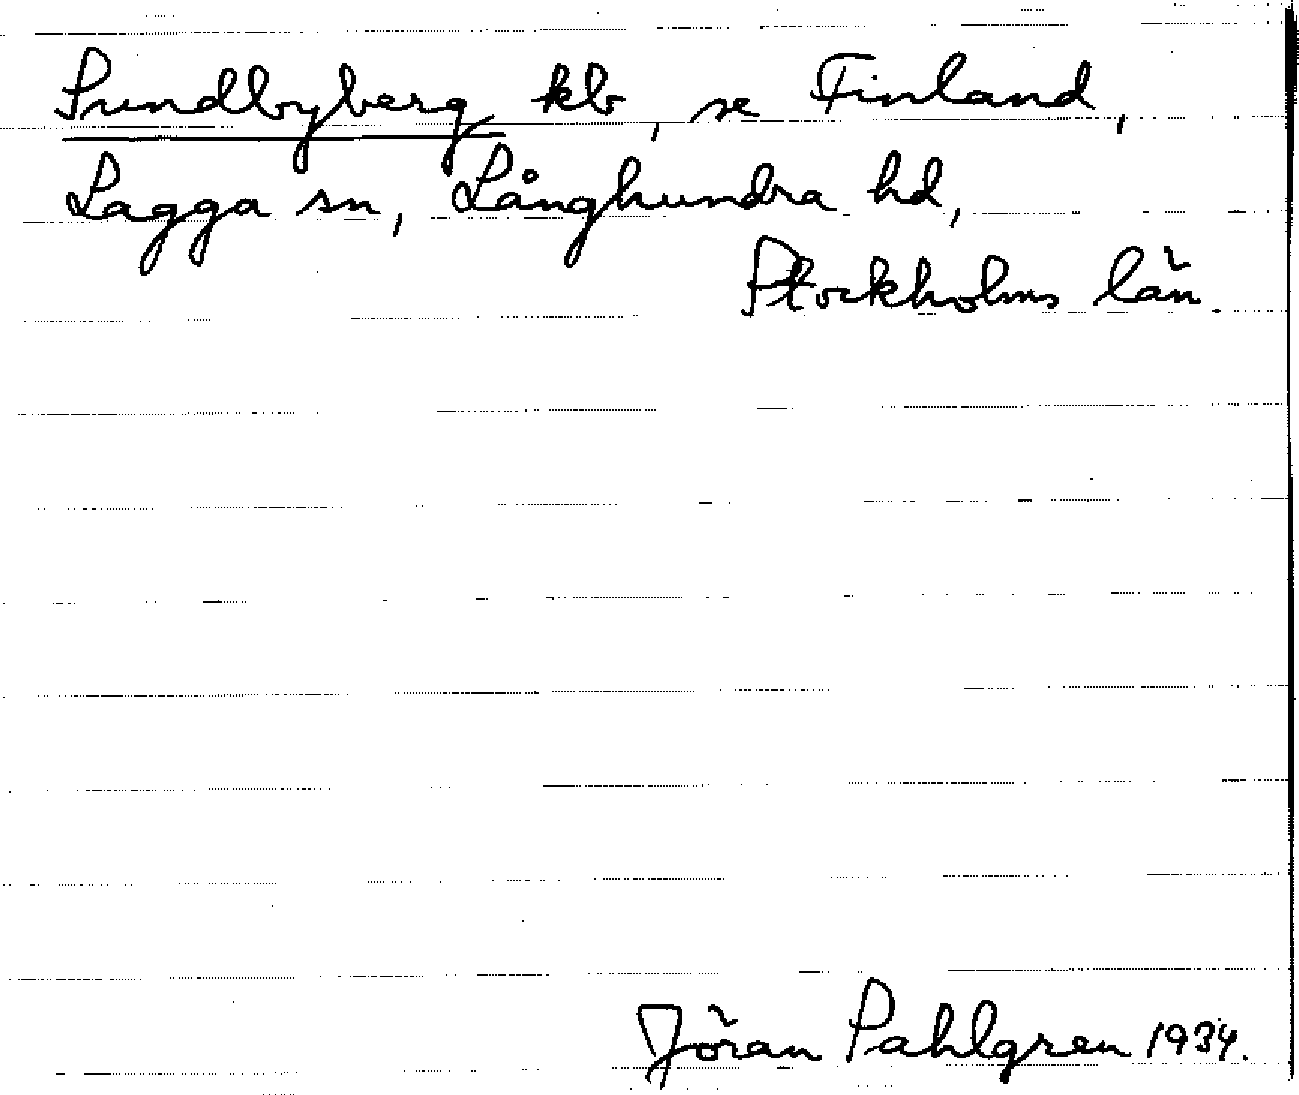 Sundbyberg kb, se Finland,
Lagga sn, Långhundra hd,
Stockholms län.
Jöran Sahlgren 1934.